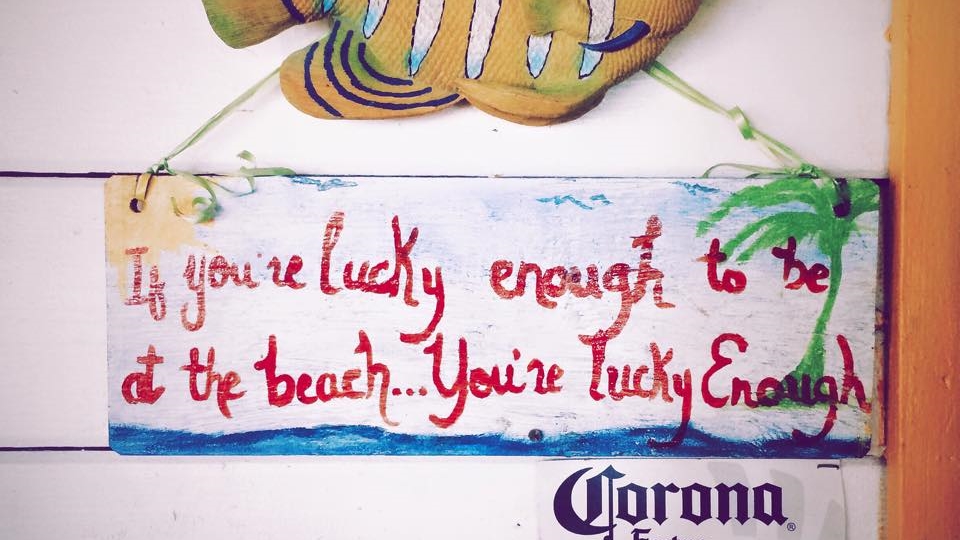 If you're lucky enough to be
at the beach...You're lucky Enough
Corona®